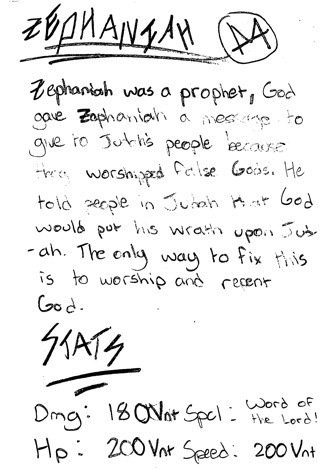 ZEPHANIAH DA
Zephaniah was a prophet, God
gave Zephaniah a message to
give to Judah's people because
they worshipped false Gods. He
told people in Judah that God
would put his wrath upon Jud-
-ah. The only way to fix this
is to worship and repent
God.
STATS
Dmg: 180Vnt Spcl: Word of
the Lord!
Hp: 200Vnt Speed: 200Vnt